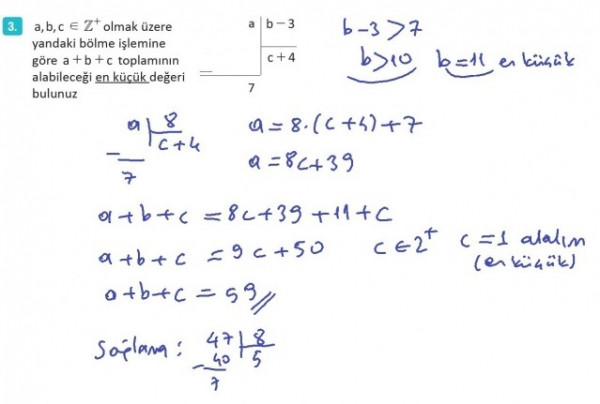 3. a, b, c ∈ Z⁺ olmak üzere
yandaki bölme işlemine
göre a + b + c toplamının
alabileceği en küçük değeri
bulunuz
a | b − 3
c + 4
7
b − 3 > 7
b > 10   b = 11 en küçük
a | 8
c + 4
7
a = 8·(c + 4) + 7
a = 8c + 39
a + b + c = 8c + 39 + 11 + c
a + b + c = 9c + 50   c ∈ Z⁺   c = 1 alalım
(en küçük)
a + b + c = 59 //
Sağlama : 47 | 8
− 40   5
7